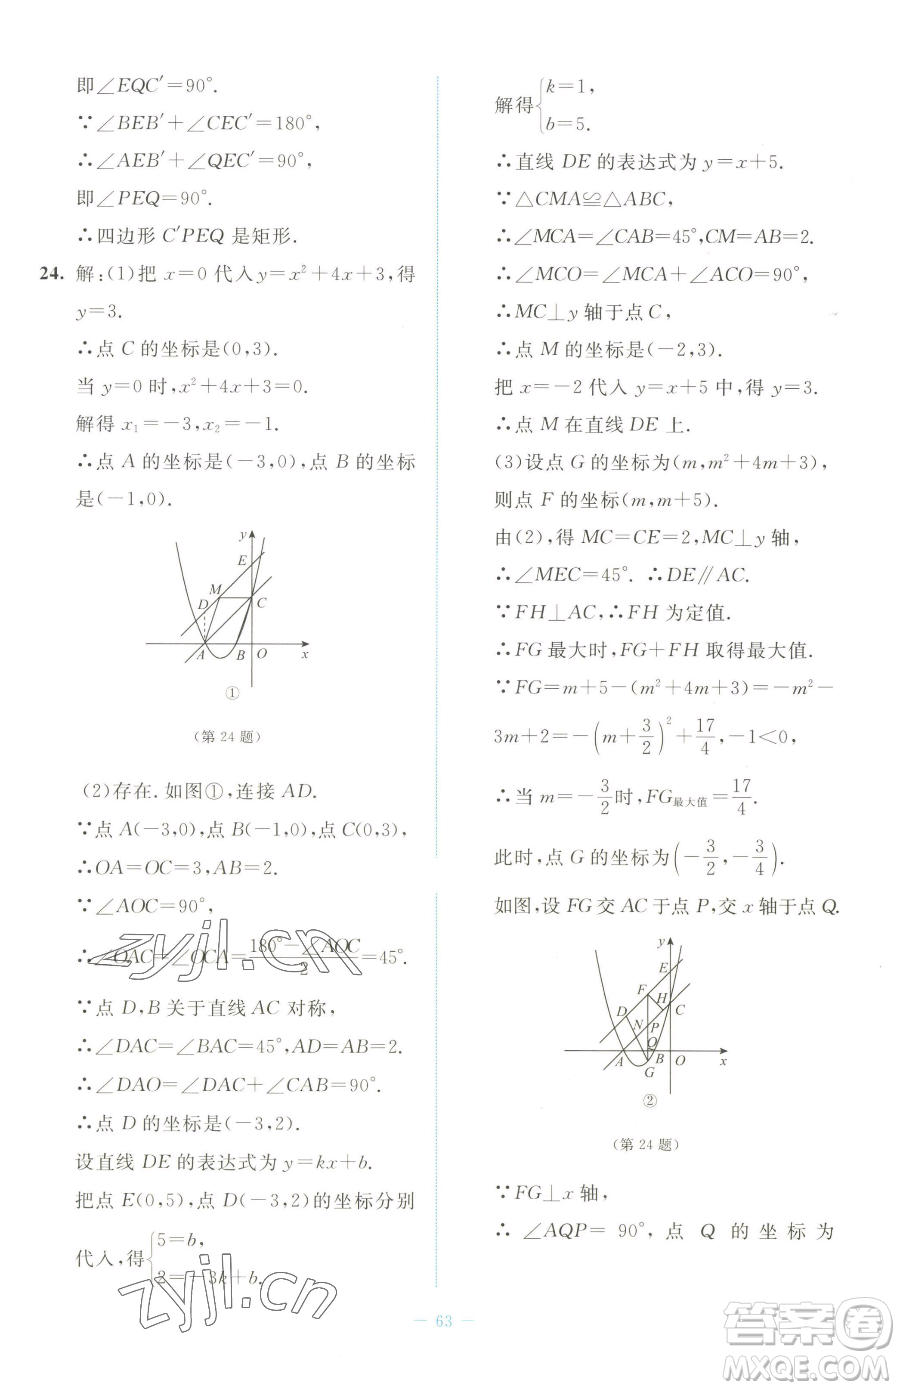 即∠EQC′=90°.
∵∠BEB′+∠CEC′=180°,
∴∠AEB′+∠QEC′=90°,
即∠PEQ=90°.
∴四边形 C′PEQ 是矩形.
24. 解:(1)把 x=0 代入 y=x²+4x+3,得
y=3.
∴点 C 的坐标是(0,3).
当 y=0 时,x²+4x+3=0.
解得 x₁=-3,x₂=-1.
∴点 A 的坐标是(-3,0),点 B 的坐标
是(-1,0).
y
E
D M
C
A B O x
①
(第 24 题)
(2)存在.如图①,连接 AD.
∵点 A(-3,0),点 B(-1,0),点 C(0,3),
∴OA=OC=3,AB=2.
∵∠AOC=90°,
∴∠OAC=∠OCA=(180°-∠AOC)/2=45°.
∵点 D,B 关于直线 AC 对称,
∴∠DAC=∠BAC=45°,AD=AB=2.
∴∠DAO=∠DAC+∠CAB=90°.
∴点 D 的坐标是(-3,2).
设直线 DE 的表达式为 y=kx+b.
把点 E(0,5),点 D(-3,2)的坐标分别
代入,得{5=b,
2=-3k+b.
解得{k=1,
b=5.
∴直线 DE 的表达式为 y=x+5.
∵△CMA≌△ABC,
∴∠MCA=∠CAB=45°,CM=AB=2.
∴∠MCO=∠MCA+∠ACO=90°.
∴MC⊥y 轴于点 C,
∴点 M 的坐标是(-2,3).
把 x=-2 代入 y=x+5 中,得 y=3.
∴点 M 在直线 DE 上.
(3)设点 G 的坐标为(m,m²+4m+3),
则点 F 的坐标(m,m+5).
由(2),得 MC=CE=2,MC⊥y 轴,
∴∠MEC=45°. ∴DE∥AC.
∵FH⊥AC,∴FH 为定值.
∴FG 最大时,FG+FH 取得最大值.
∵FG=m+5-(m²+4m+3)=-m²-
3m+2=-(m+3/2)²+17/4,-1<0,
∴当 m=-3/2时,FG最大值=17/4.
此时,点 G 的坐标为(-3/2,-3/4).
如图,设 FG 交 AC 于点 P,交 x 轴于点 Q.
y
E
F H
D C
N P
Q
A B O x
G
②
(第 24 题)
∵FG⊥x 轴,
∴∠AQP=90°,点 Q 的坐标为
63
zyjl.cn
zyjl.cn
答案圈
MXQE.COM